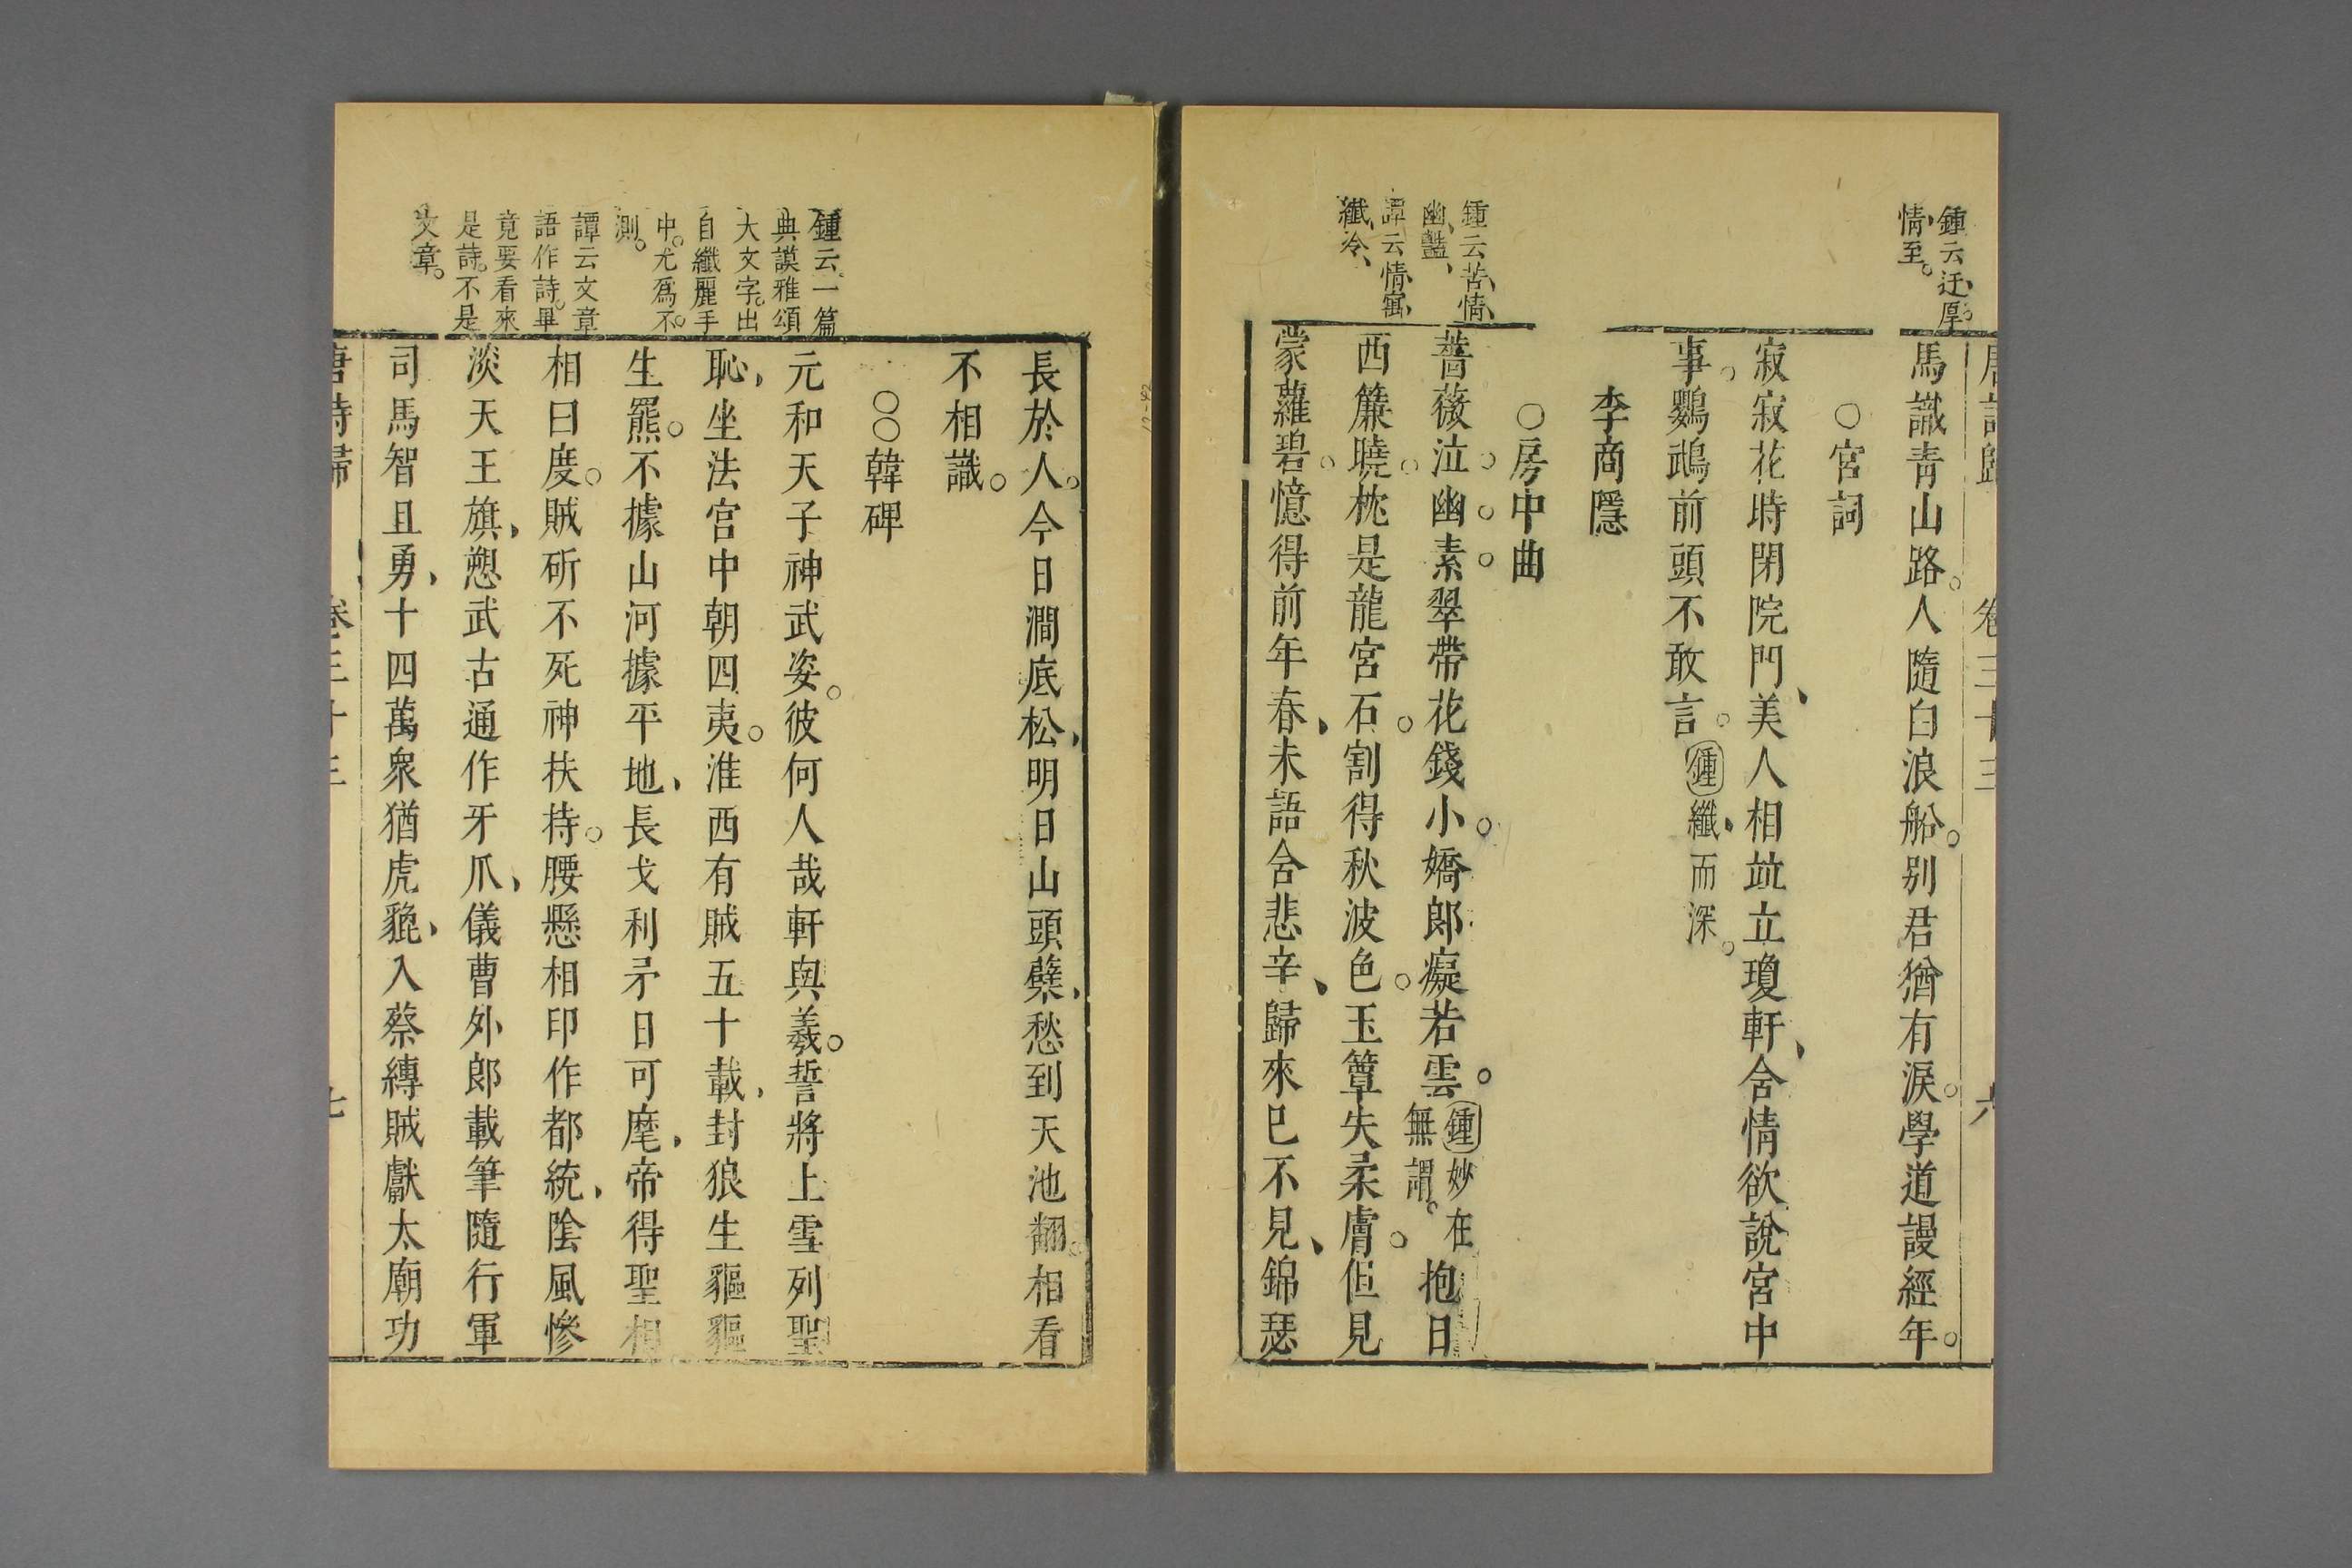 唐詩歸 卷三十三 六
鍾云迂厚
情至。
馬識靑山路。人隨白浪船。别君猶有淚。學道謾經年。
○宮詞
寂寂花時閉院門、美人相竝立瓊軒、含情欲說宮中
事。鸚鵡前頭不敢言。鍾纖而深。
李商隱
○房中曲
鍾云苦情
幽豔、
譚云情寓
纖冷、
薔薇泣幽素。翠帶花錢小。嬌郎癡若雲。鍾妙在
無謂。抱日
西簾曉。枕是龍宮石。割得秋波色。玉簟失柔膚。但見
蒙羅碧。憶得前年春、未語含悲辛、歸來已不見、錦瑟
長於人。今日澗底松、明日山頭蘗、愁到天池翻。相看
不相識。
○○韓碑
鍾云一篇
典謨雅頌
大文字。出
自纖麗手
中。尤爲不
測。
譚云文章
語作詩。畢
竟要看來
是詩。不是
文章。
元和天子神武姿。彼何人哉軒與羲。誓將上雪列聖
恥、坐法宮中朝四夷。淮西有賊五十載、封狼生貙貙
生羆。不據山河據平地、長戈利矛日可麾、帝得聖相
相曰度。賊斫不死神扶持。腰懸相印作都統、陰風慘
淡天王旗、愬武古通作牙爪、儀曹外郎載筆隨行軍
司馬智且勇、十四萬衆猶虎貔、入蔡縛賊獻太廟功
唐詩歸 卷三十三 七